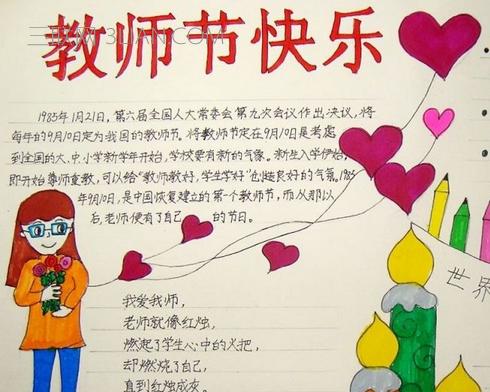 三联网 3LIAN.COM
教师节快乐
1985年1月21日，第六届全国人大常委会第九次会议作出决议，将
每年的9月10日定为我国的教师节。将教师节定在9月10日是考虑
到全国的大、中、小学新学年开始，学校要有新的气象。新生入学伊始，
即开始尊师重教，可以给"教师教好，学生学好"创造良好的气氛。1985
年9月10日，是中国恢复建立的第一个教师节，而从那以
后，老师便有了自己的节日。
我爱我师，
老师就像红烛，
燃起了学生心中的火把，
却燃烧了自己，
直到红烛成灰。
世界